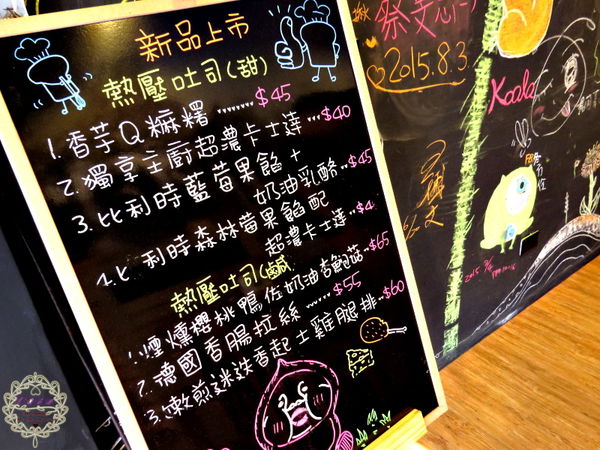 新品上市
熱壓吐司(甜)
1.香芋Q麻糬........$45
2.獨享主廚超濃卡士達...$40
3.比利時藍莓果餡+
奶油乳酪..$45
4.比利時森林莓果餡配
超濃卡士達..$4
熱壓吐司(鹹
1.煙燻櫻桃鴨佐奶油杏鮑菇..$65
2.德國香腸拉絲......$55
3.嫩煎迷迭香起士雞腿排..$60
2015.8.3
Koala